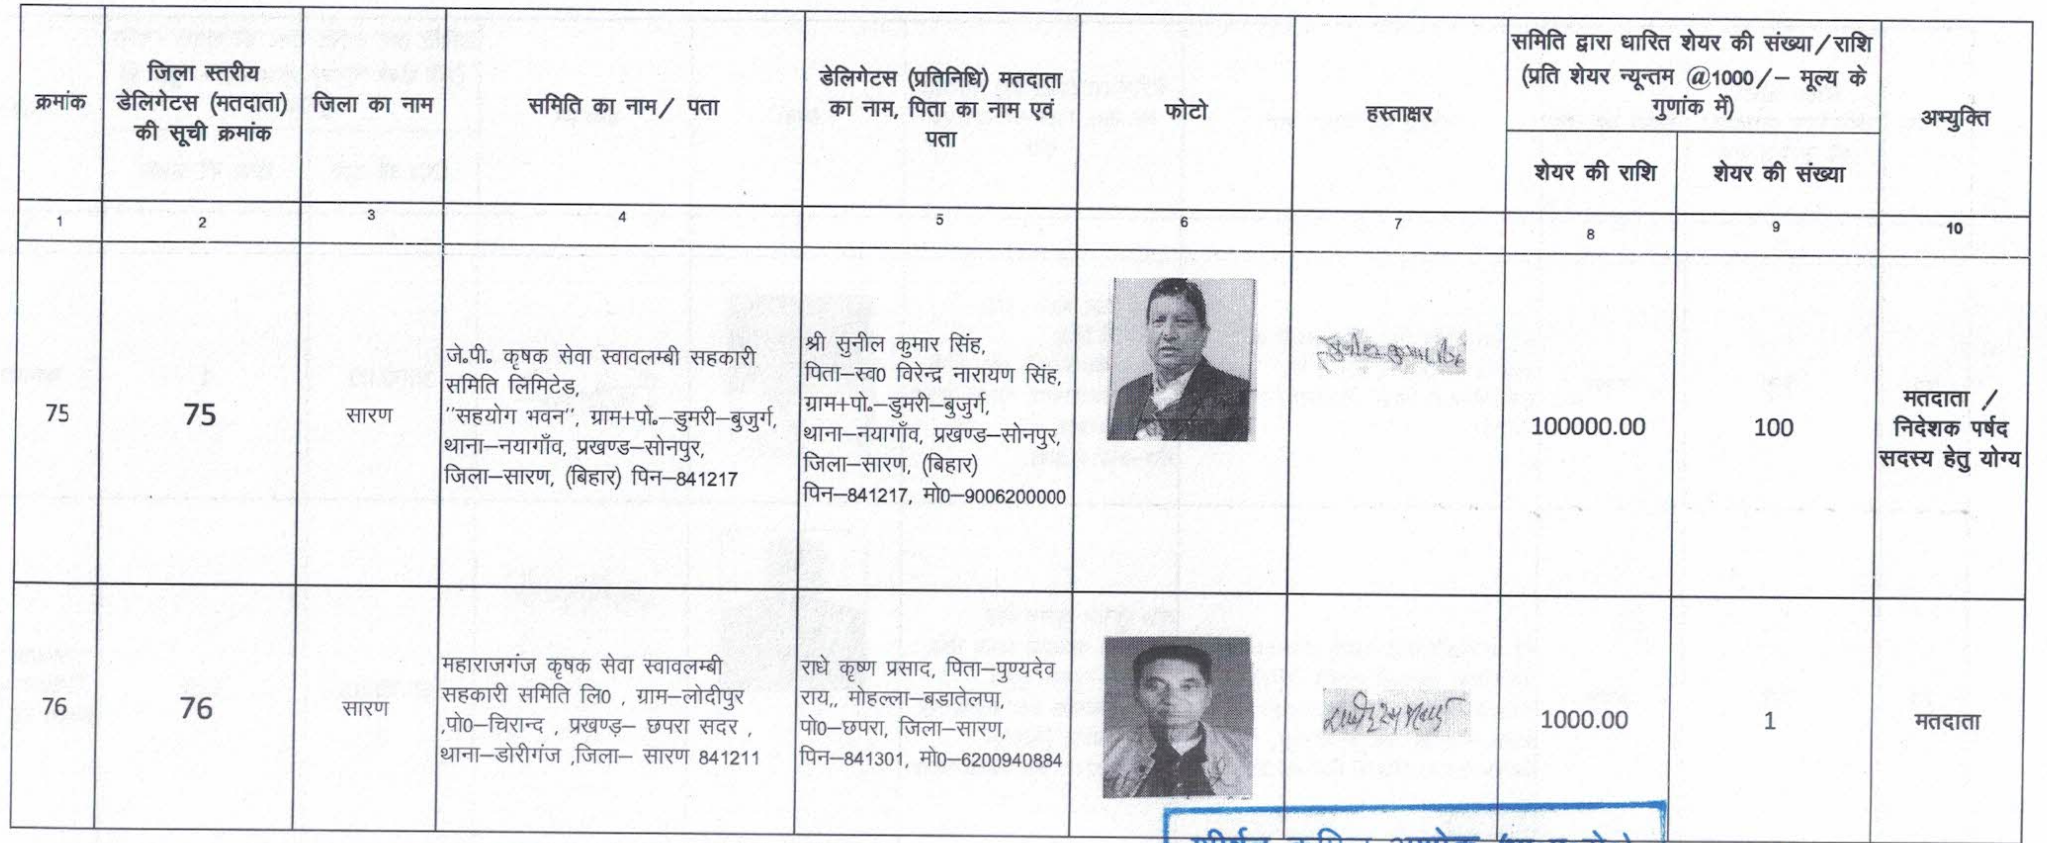 क्रमांक
जिला स्तरीय
डेलिगेटस (मतदाता)
की सूची क्रमांक
जिला का नाम
समिति का नाम/ पता
डेलिगेटस (प्रतिनिधि) मतदाता
का नाम, पिता का नाम एवं
पता
फोटो
हस्ताक्षर
समिति द्वारा धारित शेयर की संख्या/राशि
(प्रति शेयर न्यून्तम @1000/– मूल्य के
गुणांक में)
शेयर की राशि
शेयर की संख्या
अभ्युक्ति
1
2
3
4
5
6
7
8
9
10
75
75
सारण
जे॰पी॰ कृषक सेवा स्वावलम्बी सहकारी
समिति लिमिटेड,
"सहयोग भवन", ग्राम+पो॰–डुमरी–बुजुर्ग,
थाना–नयागाँव, प्रखण्ड–सोनपुर,
जिला–सारण, (बिहार) पिन–841217
श्री सुनील कुमार सिंह,
पिता–स्व0 विरेन्द्र नारायण सिंह,
ग्राम+पो॰–डुमरी–बुजुर्ग,
थाना–नयागाँव, प्रखण्ड–सोनपुर,
जिला–सारण, (बिहार)
पिन–841217, मो0–9006200000
100000.00
100
मतदाता /
निदेशक पर्षद
सदस्य हेतु योग्य
76
76
सारण
महाराजगंज कृषक सेवा स्वावलम्बी
सहकारी समिति लि0 , ग्राम–लोदीपुर
,पो0–चिरान्द , प्रखण्ड़– छपरा सदर ,
थाना–डोरीगंज ,जिला– सारण 841211
राधे कृष्ण प्रसाद, पिता–पुण्यदेव
राय,, मोहल्ला–बडातेलपा,
पो0–छपरा, जिला–सारण,
पिन–841301, मो0–6200940884
1000.00
1
मतदाता